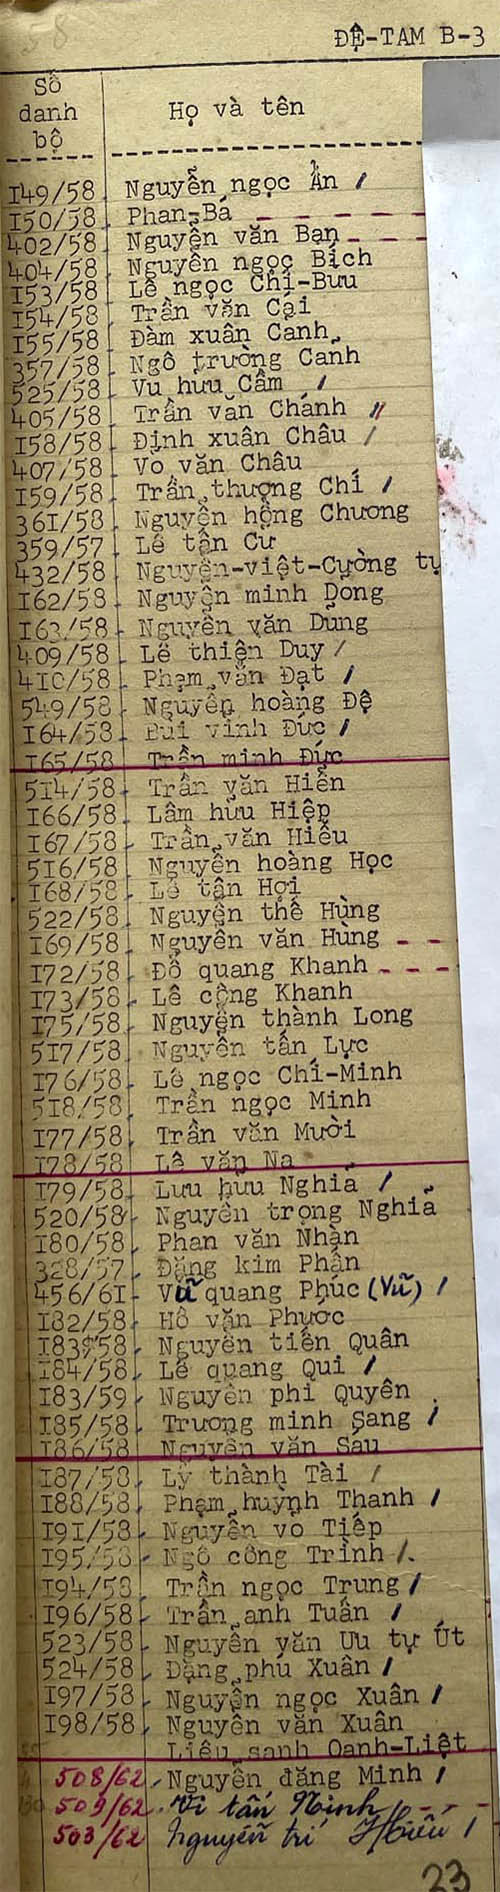 58
ĐỆ-TAM B-3
Số danh bộ Họ và tên
I49/58 Nguyễn ngọc Ẩn /
I50/58 Phan-Bá
402/58 Nguyễn văn Ban
404/58 Nguyễn ngọc Bích
I53/58 Lê ngọc Chí-Bưu
I54/58 Trần văn Cại
I55/58 Đàm xuân Canh
357/58 Ngô trường Canh
525/58 Vu hưu Cầm /
405/58 Trần văn Chánh //
I58/58 Định xuân Châu /
407/58 Vo văn Châu
I59/58 Trần thượng Chí /
36I/58 Nguyễn hồng Chương
359/57 Lê tấn Cư
432/58 Nguyễn-việt-Cường tự
I62/58 Nguyễn minh Dong
I63/58 Nguyễn văn Dũng
409/58 Lê thiện Duy /
4I0/58 Phạm văn Đạt /
549/58 Nguyễn hoàng Đệ
I64/58 Bùi vinh Đức /
I65/58 Trần minh Đức
5I4/58 Trần văn Hiển
I66/58 Lâm hữu Hiệp
I67/58 Trần văn Hiếu
5I6/58 Nguyễn hoàng Học
I68/58 Lê tấn Hợi
522/58 Nguyễn thế Hùng
I69/58 Nguyễn văn Hùng
I72/58 Đỗ quang Khanh
I73/58 Lê công Khanh
I75/58 Nguyễn thành Long
5I7/58 Nguyễn tấn Lực
I76/58 Lê ngọc Chí-Minh
5I8/58 Trần ngọc Minh
I77/58 Trần văn Mười
I78/58 Lê văn Na
I79/58 Lưu hữu Nghiả /
520/58 Nguyễn trọng Nghiả
I80/58 Phan văn Nhàn
328/57 Đặng kim Phấn
456/6I Vũ quang Phúc (Vũ) /
I82/58 Hồ văn Phước
I83/58 Nguyễn tiến Quân
I84/58 Lê quang Qui /
I83/59 Nguyễn phi Quyên
I85/58 Trương minh Sang /
I86/58 Nguyễn văn Sáu
I87/58 Lý thành Tài /
I88/58 Phạm huỳnh Thanh /
I9I/58 Nguyễn vo Tiếp
I95/58 Ngô công Trình /
I94/58 Trần ngọc Trung /
I96/58 Trần anh Tuấn /
523/58 Nguyễn văn Ưu tự Út
524/58 Đặng phú Xuân /
I97/58 Nguyễn ngọc Xuân /
I98/58 Nguyễn văn Xuân
Liêu sanh Oanh-Liệt
508/62 Nguyễn đăng Minh /
509/62 Vi tấn Ninh
503/62 Nguyễn trí Hiếu /
23